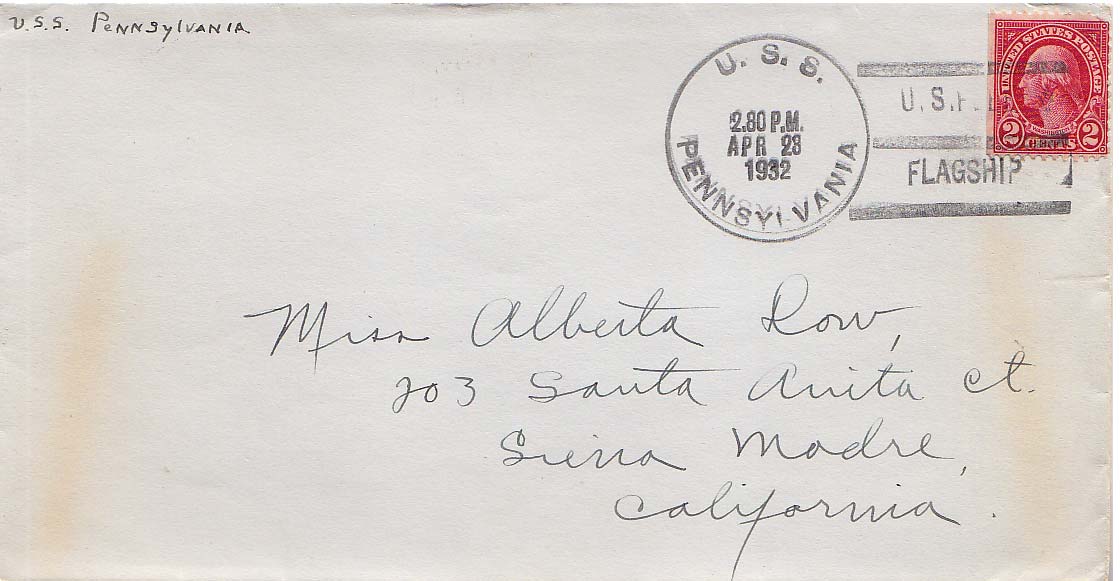 U.S.S. Pennsylvania
U. S. S.
2.80 P.M.
APR 23
1932
PENNSYLVANIA
U.S.
FLAGSHIP
UNITED STATES POSTAGE
WASHINGTON
2 CENTS 2
Miss Alberta Row,
203 Santa Anita Ct.
Sierra Madre,
California.